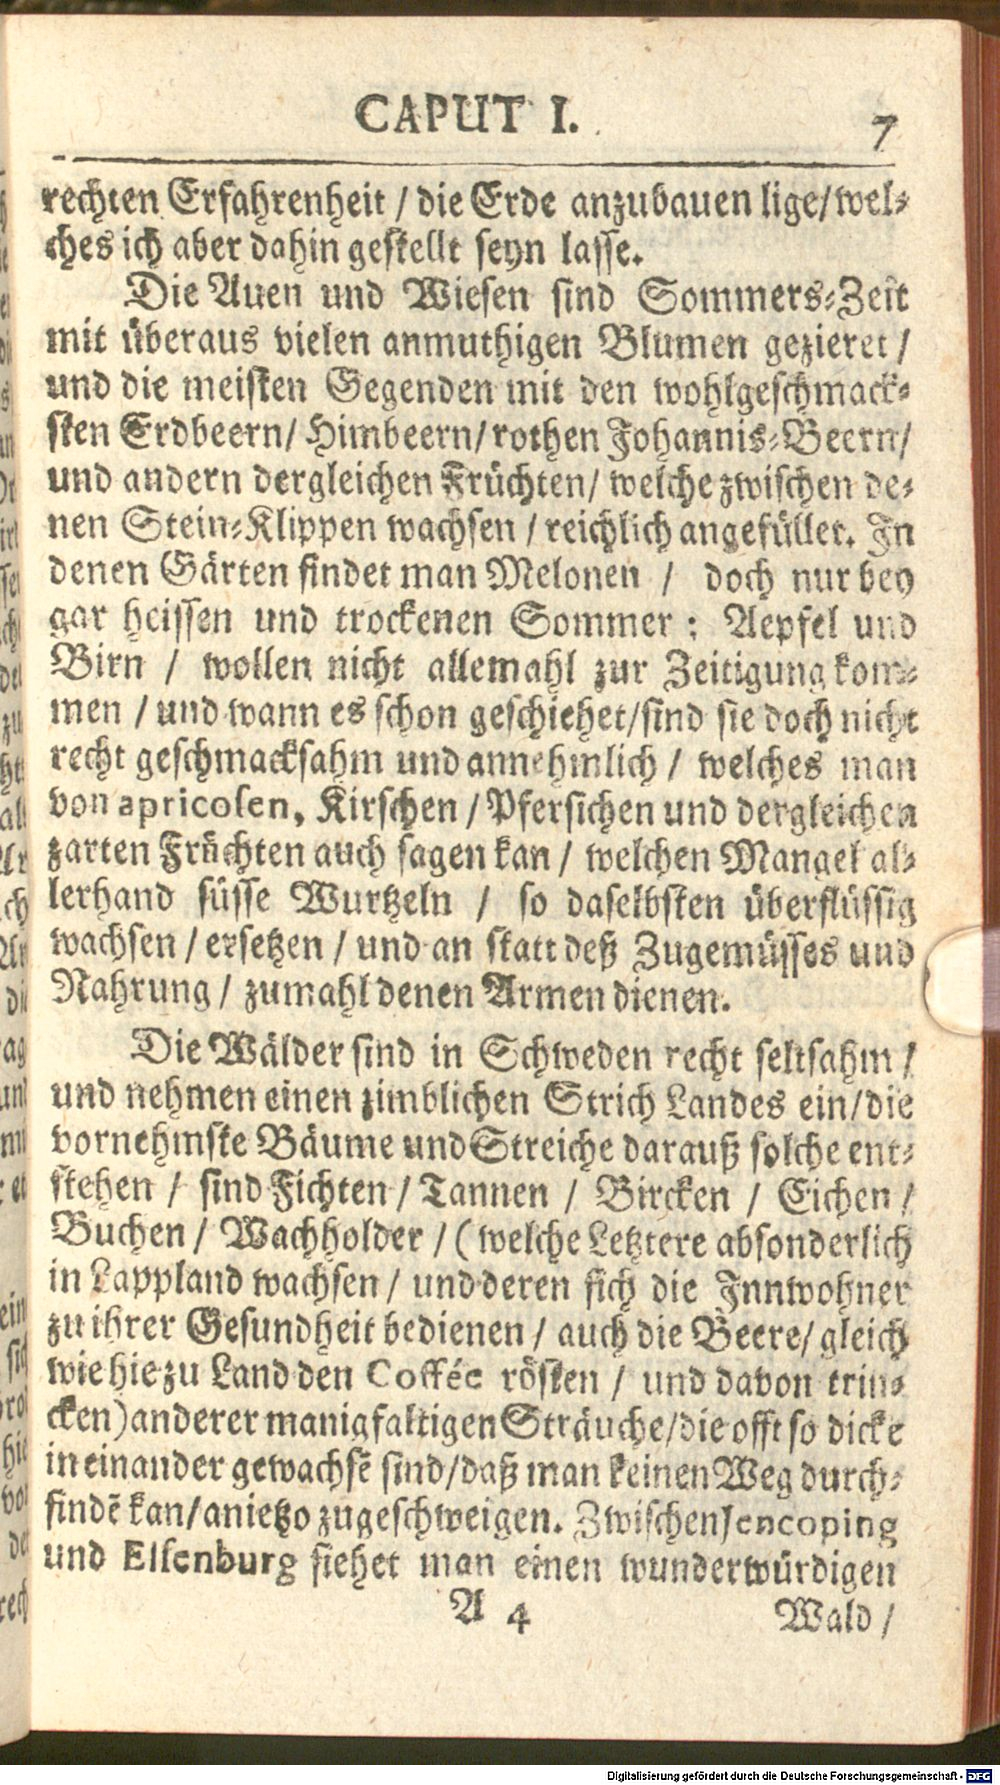 CAPUT I. 7
rechten Erfahrenheit / die Erde anzubauen lige/ wel-
ches ich aber dahin gestellt seyn lasse.
Die Auen und Wiesen sind Sommers-Zeit
mit überaus vielen anmuthigen Blumen gezieret /
und die meisten Gegenden mit den wohlgeschmack-
sten Erdbeern/ Himbeern/ rothen Johannis-Beern/
und andern dergleichen Früchten/ welche zwischen de-
nen Stein-Klippen wachsen / reichlich angefüllet. In
denen Gärten findet man Melonen / doch nur bey
gar heissen und trockenen Sommer ; Aepfel und
Birn / wollen nicht allemahl zur Zeitigung kom-
men / und wann es schon geschiehet/sind sie doch nicht
recht geschmacksahm und annehmlich / welches man
von apricosen, Kirschen / Pfersichen und dergleichen
zarten Früchten auch sagen kan / welchen Mangel al-
lerhand süsse Wurtzeln / so daselbsten überflüssig
wachsen / ersetzen / und an statt deß Zugemüsses und
Nahrung / zumahl denen Armen dienen.
Die Wälder sind in Schweden recht seltsahm /
und nehmen einen zimblichen Strich Landes ein/die
vornehmste Bäume und Streiche darauß solche ent-
stehen / sind Fichten / Tannen / Bircken / Eichen /
Buchen / Wachholder / ( welche Letztere absonderlich
in Lappland wachsen / und deren sich die Innwohner
zu ihrer Gesundheit bedienen / auch die Beere/ gleich
wie hie zu Land den Coffée rösten / und davon trin-
cken) anderer manigfaltigen Sträuche/die offt so dicke
in einander gewachsẽ sind/daß man keinen Weg durch-
findẽ kan/anietzo zugeschweigen. Zwischen Jencoping
und Elsenburg siehet man einen wunderwürdigen
A 4 Wald /
Digitalisierung gefördert durch die Deutsche Forschungsgemeinschaft - DFG